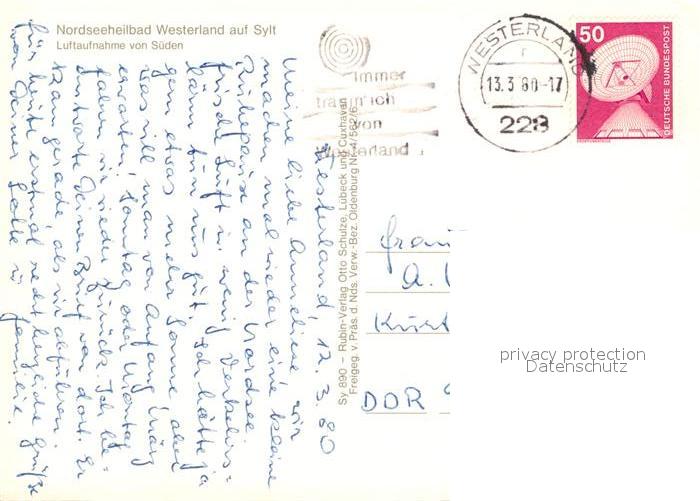 Nordseeheilbad Westerland auf Sylt
Luftaufnahme von Süden
Immer
träum' ich
von
Westerland
WESTERLAND
13.3.80-17
228
50
DEUTSCHE BUNDESPOST
Sy 890 – Rubin-Verlag Otto Schutze, Lübeck und Cuxhaven
Freigeg. v. Präs d. Nds. Verw.-Bez. Oldenburg Nr. 4/562/6
Westerland, 12. 3. 80
Meine liebe Anneliese, wir
machen mal wieder eine kleine
Ruhepause an der Nordsee.
Frische Luft u. wenig Verkehrs-
lärm tun uns gut. Ich hätte ja
gern etwas mehr Sonne aber
was will man von Anfang März
erwarten. Sonntag oder Montag
fahren wir wieder zurück. Ich be-
antworte Deinen Brief von dort. Er
kam gerade, als wir abfuhren.
Für heute erstmal recht herzliche Grüße
von Deiner u. Familie.
Frau
A.
Kurt
DDR
privacy protection
Datenschutz